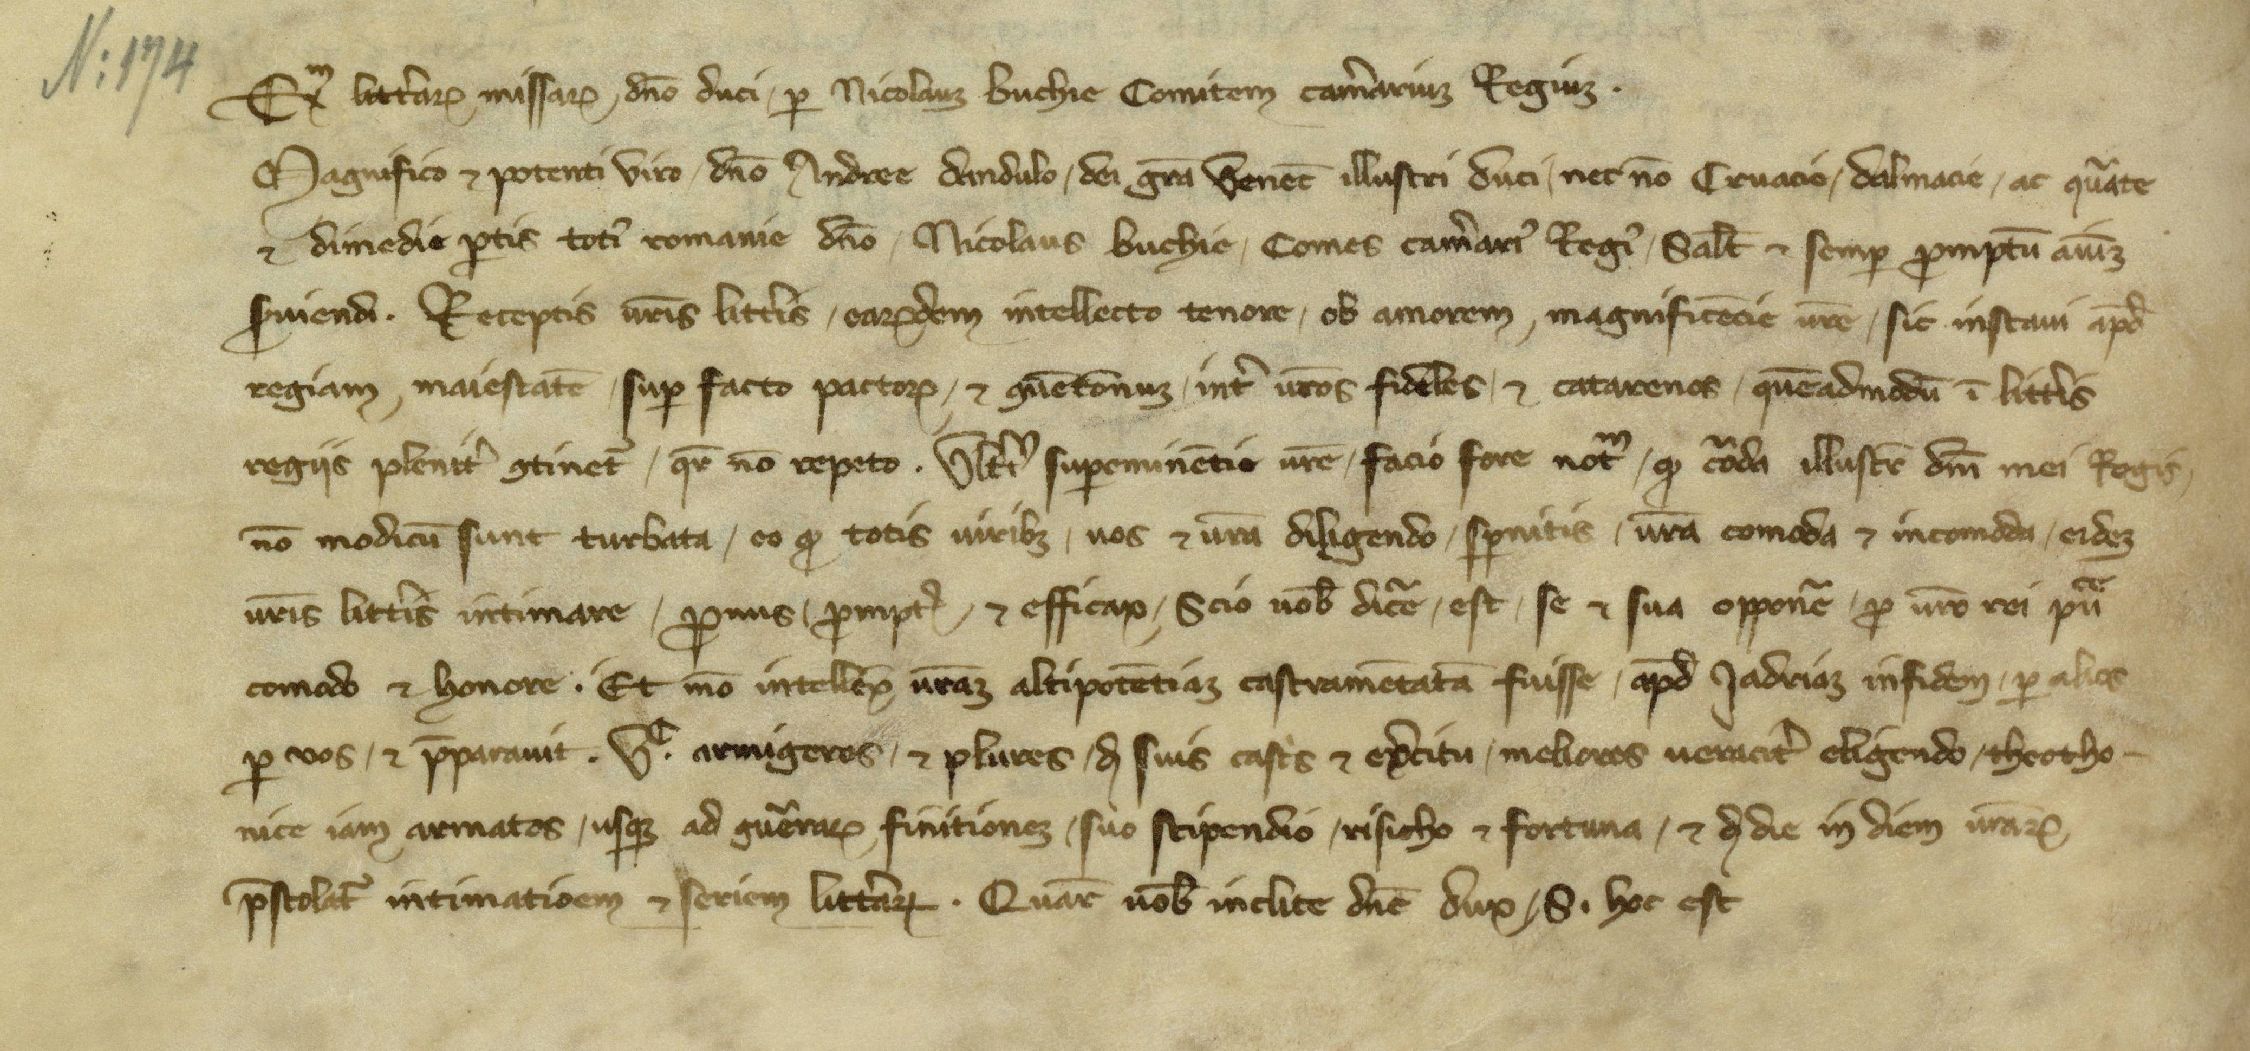 N: 174
Exm litt̄arꝝ missarꝝ dn̄o duci ꝑ Nicolauꝫ buchie Comitem cam̄ariuꝫ Regiuꝫ .
Magnifico ⁊ potenti viro / dn̄o Andree dandulo / dei gr̄a Venet̄ illustri duci / nec nō Cruacie / dalmacie / ac qᷓrte
⁊ dimedie ꝑtis toti᷒ romanie dn̄o / Nicolaus buchie / Comes cam̄ari᷒ Regi᷒ / Salt̄ ⁊ semꝑ ꝓmptū aīuꝫ
ẜuiendi . Receptis vr̄is litt̄is / earꝝdem intellecto tenore / ob amorem / magnificēcie vr̄e / sic institi apd̄
regiam maiestatē / suꝑ facto pactorꝝ / ⁊ ꝯuētionuꝫ / int̄ vr̄os fideles / ⁊ catarenos / quēadmodū ī litt̄is
regijs plenit̄ ꝯtinet᷑ / qr̄ nō repeto . Vlt̄i᷒ suꝑeminētie vr̄e / facio fore notm̄ / ꝙ cor̄da illustr̄ dn̄i mei Regis /
nō modicū sunt turbata / eo ꝙ totis uiribꝫ / uos ⁊ vr̄a diligendo / sꝑnitis / vr̄a comoda ⁊ incomoda / eideꝫ
vr̄is litt̄is intimare / ꝓnus / ꝓmpt᷒ / ⁊ efficax / Scio uob̄ dic̄e / est / se ⁊ sua oppon̄e / ꝓ vr̄o rei pu᷒ce
comodo ⁊ honore . Et mō intellex̄ vr̄aꝫ altipotētiaꝫ castramētatā fuisse / apd̄ Jadriaꝫ infidem / ꝑ alios
ꝑ vos / ⁊ p̄parauit . Vᶜ. armigeros / ⁊ plures / d̄ suis cast̄s ⁊ ex̄citu / meliores ueracit̄ eligendo / theotho-
nice iam armatos / usqꝫ ad guerrarꝝ finitioneꝫ / suo stipendio / risicho ⁊ fortuna / ⁊ d̄ die in diem vr̄arꝝ
p̄stolat᷑ intimatioem ⁊ seriem litt̄arꝝ . Quar̄ uob̄ inclite dn̄e dux / S. hoc est